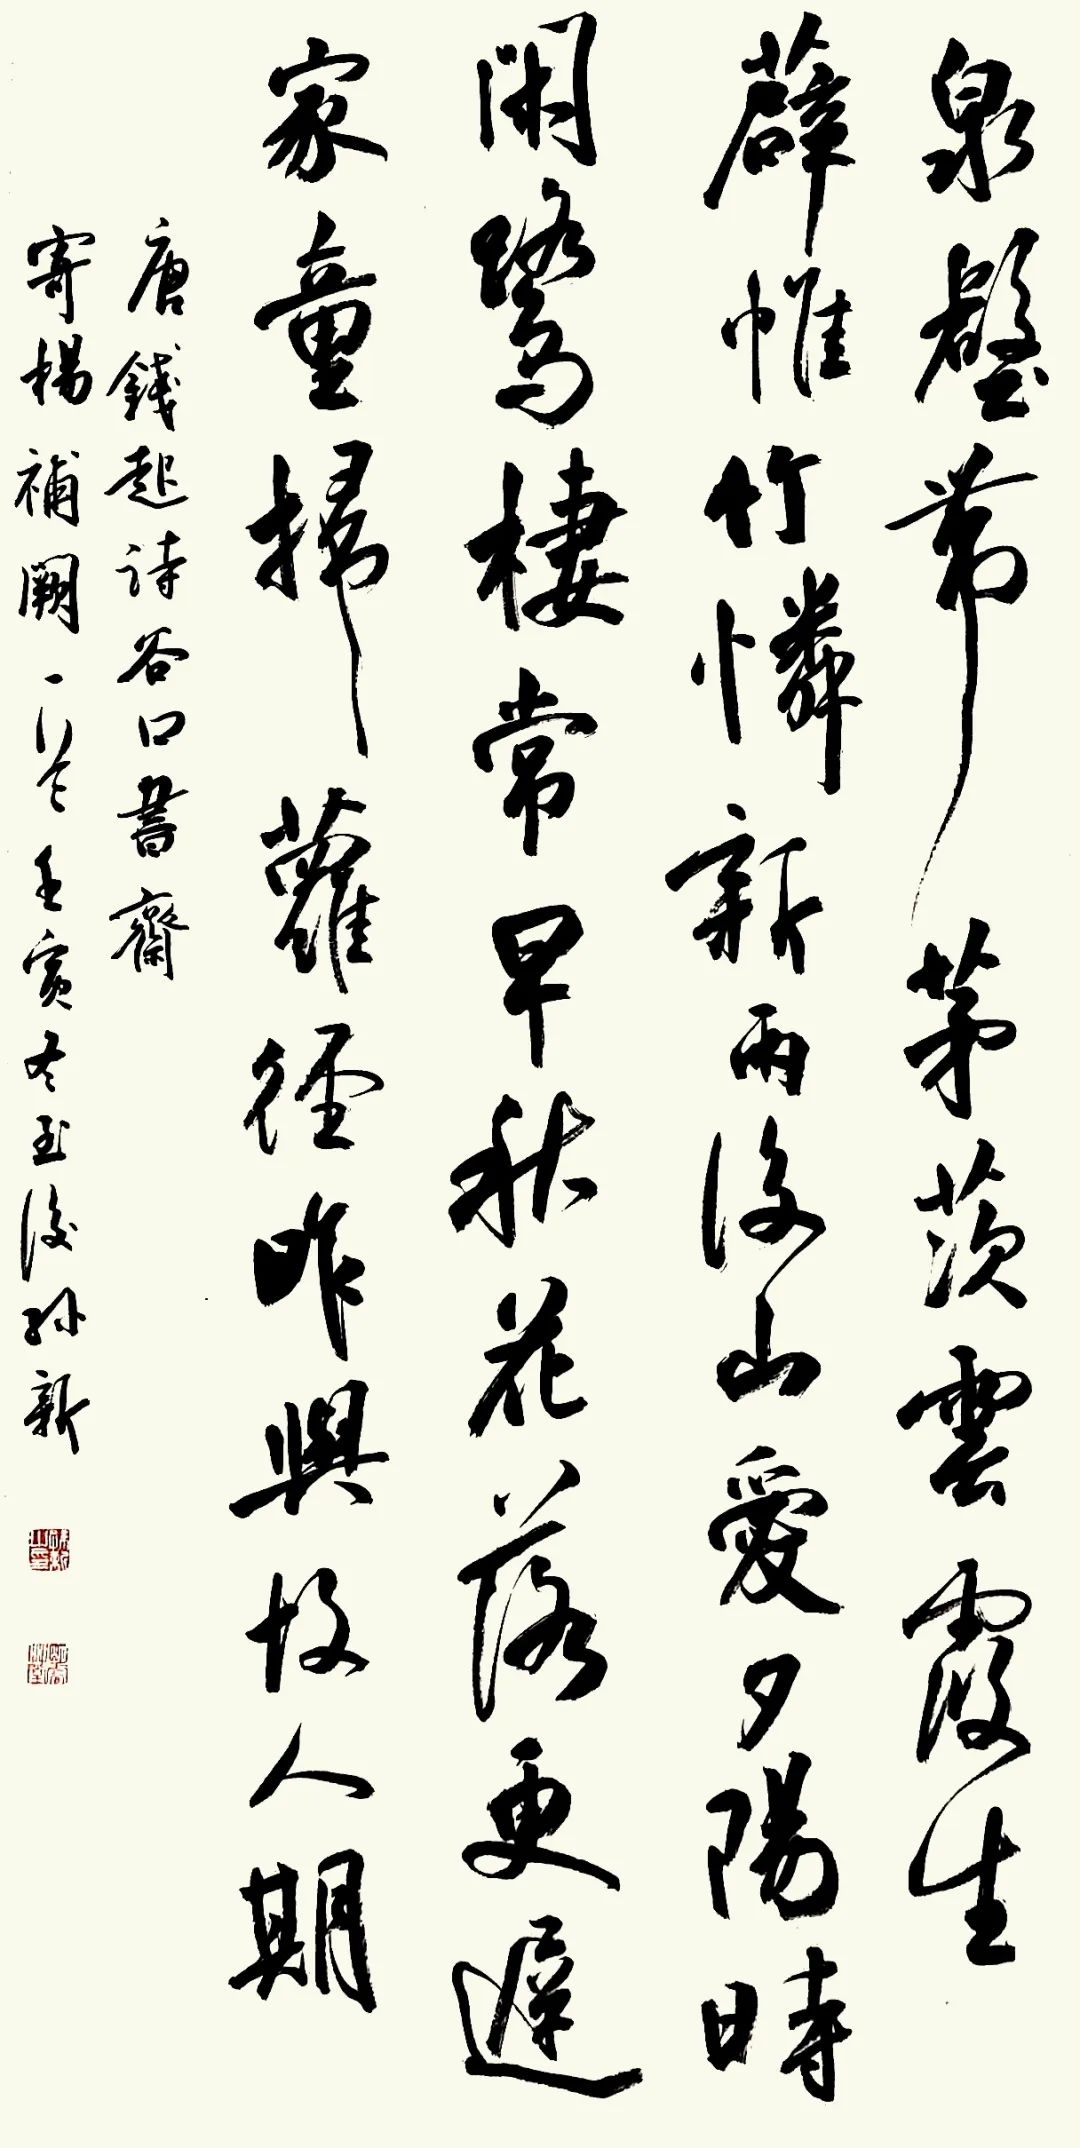 泉壑帶茅茨雲霞生
薜帷竹憐新雨後山愛夕陽時
閑鷺棲常早秋花落更遲
家童掃蘿徑昨與故人期
唐錢起詩谷口書齋
寄楊補闕一壬寅冬至後孫新